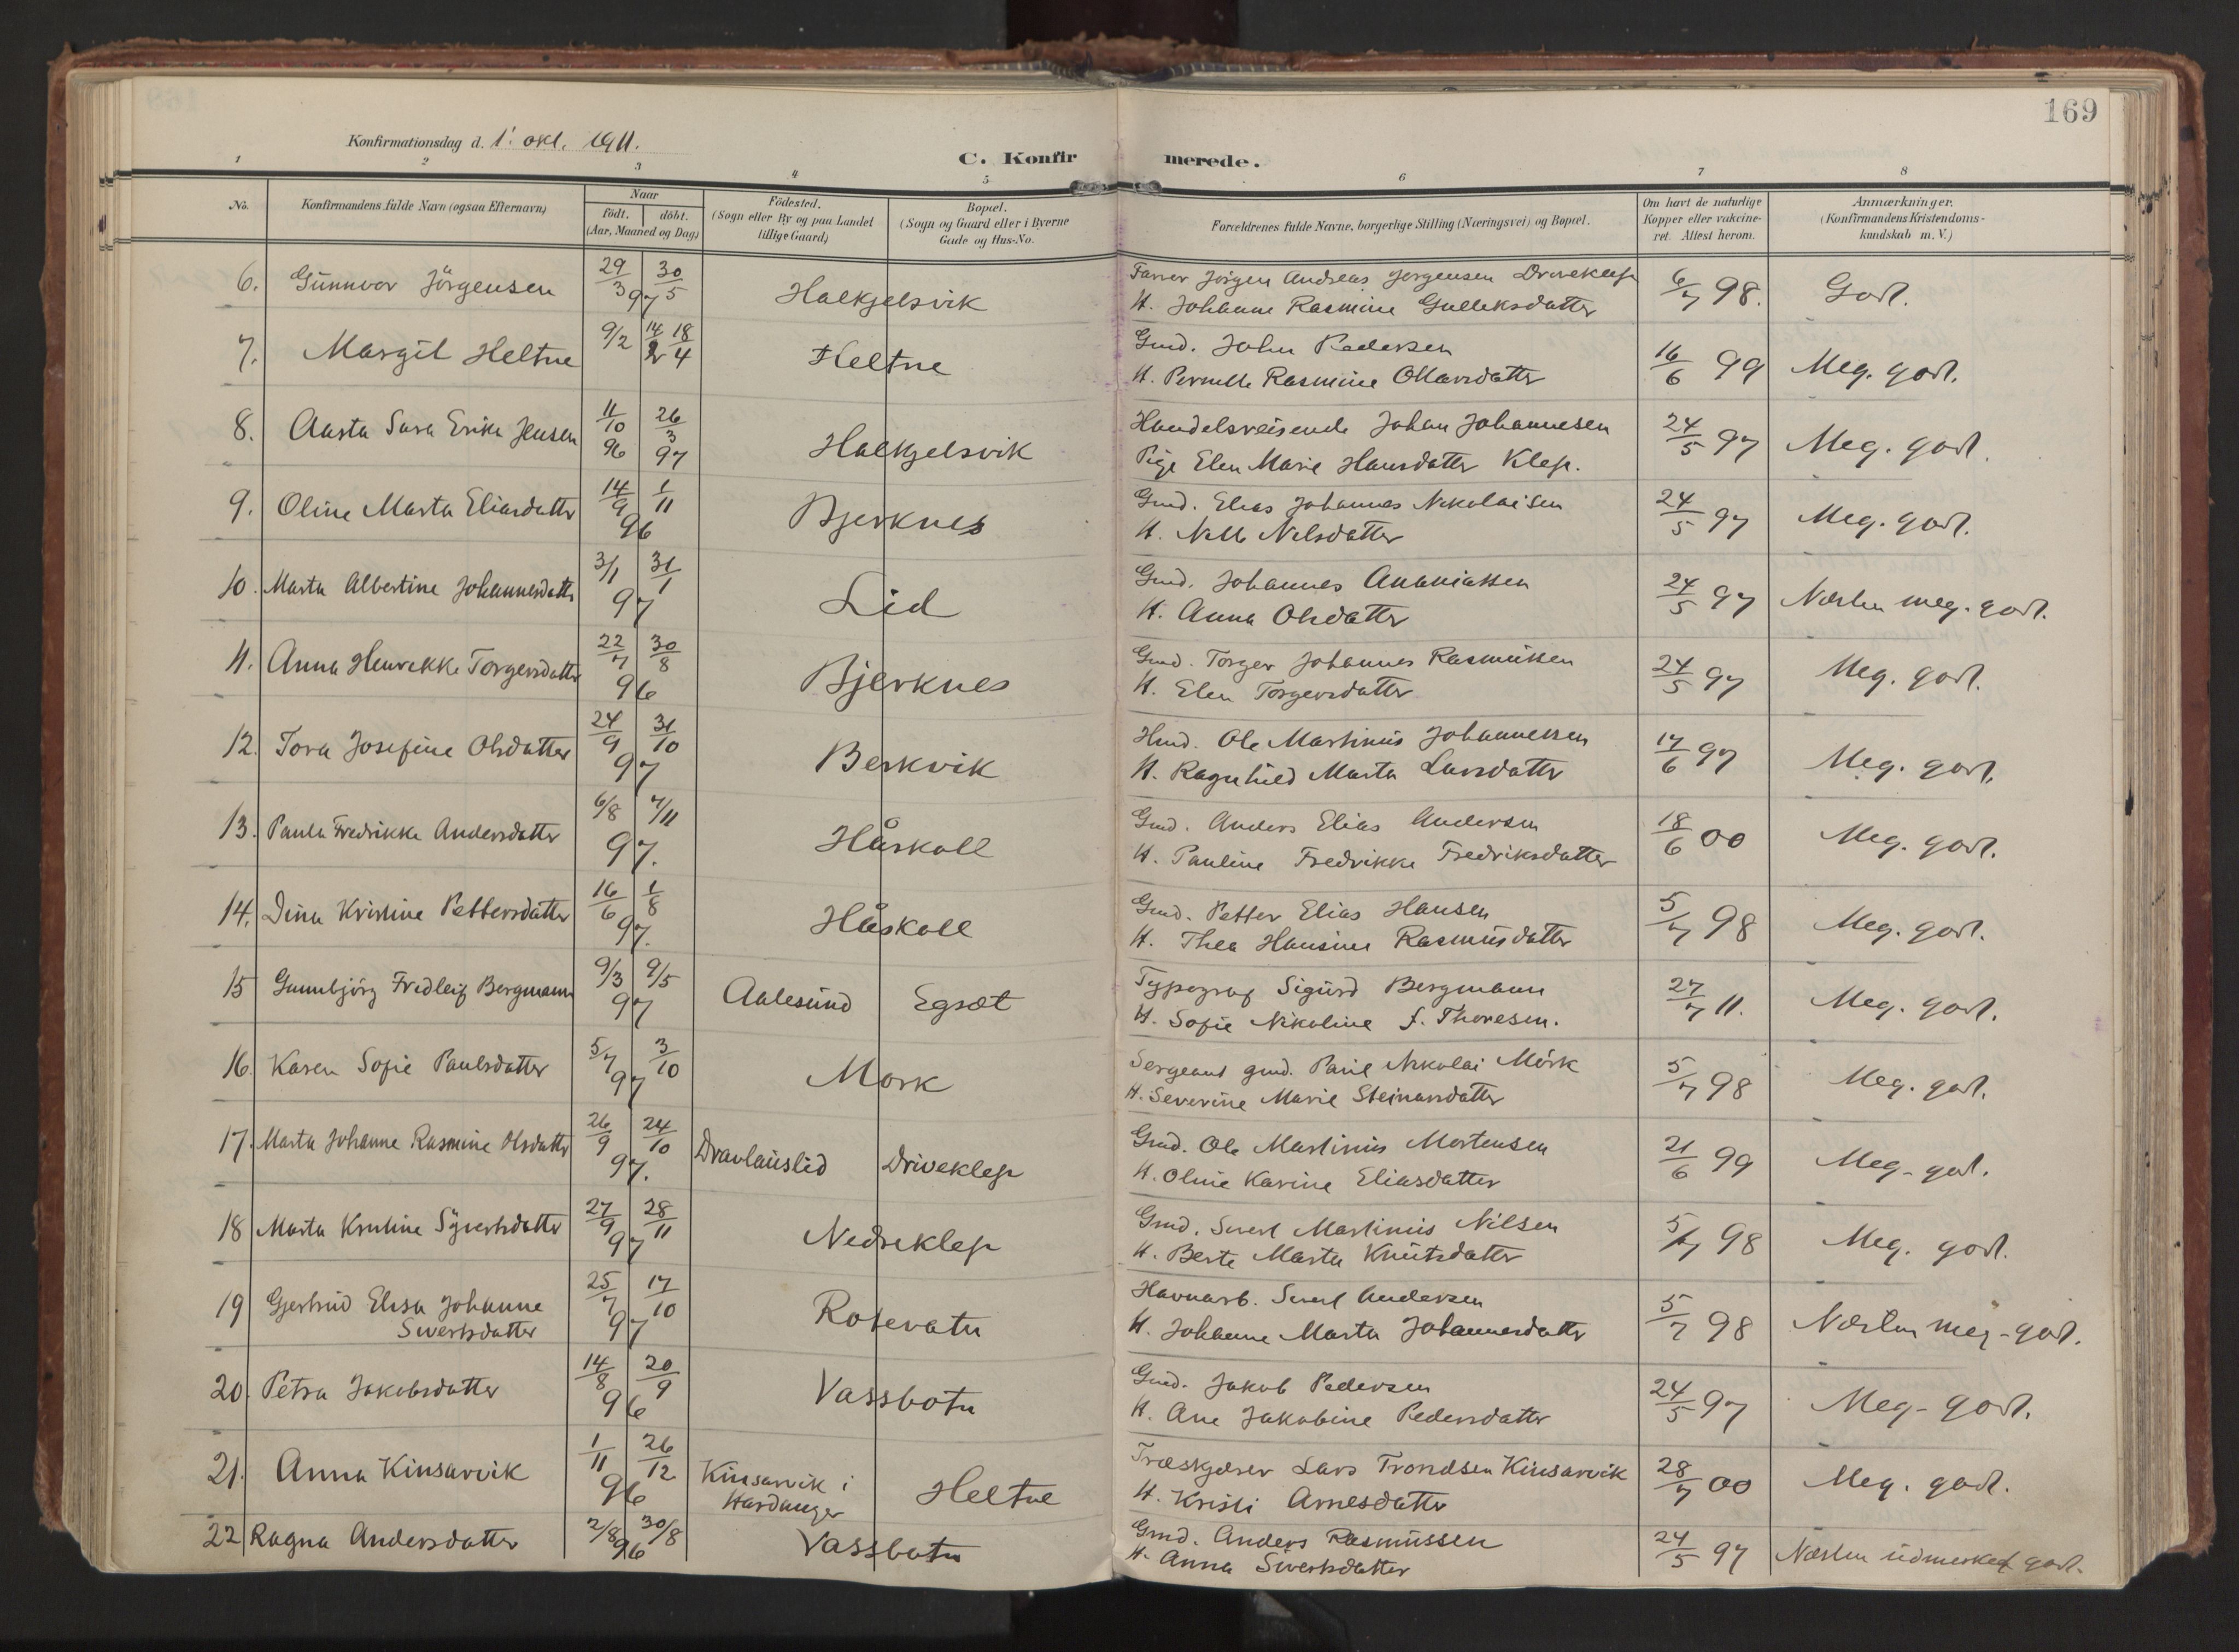 169
Konfirmationsdag d. 1. okt. 1911.
C. Konfirmerede.
1 2 3 4 5 6 7 8
No.
Konfirmandens fulde Navn (ogsaa Efternavn)
Naar
födt. döbt.
(Aar, Maaned og Dag)
Födested.
(Sogn eller By og paa Landet
tillige Gaard)
Bopæl.
(Sogn og Gaard eller i Byerne
Gade og Hus-No.
Forældrenes fulde Navne, borgerlige Stilling (Næringsvei) og Bopæl.
Om havt de naturlige
Kopper eller vakcine-
ret. Attest herom.
Anmærkninger.
(Konfirmandens Kristendoms-
kundskab m. V.)
6. Gunnvor Jörgensen 29/3 30/5 97 Halkjelsvik Farver Jörgen Andreas Jörgensen Driveklep 6/7 98. Godt.
H. Johanne Rasmine Gulleksdatter
7. Margit Heltne 9/2 18/4 Heltne Gmd. John Pedersen 16/6 99 Meg. godt.
H. Pernille Rasmine Ottarsdatter
8. Aasta Sara Erika Jensen 11/10 96 26/3 97 Halkjelsvik Handelsreisende Johan Johannesen 24/5 97 Meg. godt.
Pige Elen Marie Hansdatter Klep.
9. Oline Marta Eliasdatter 14/9 1/11 96 Bjerknes Gmd. Elias Johannes Nikolaisen 24/5 97 Meg. godt.
H. Nille Nilsdatter
10. Marta Albertine Johannesdatter 3/1 31/1 97 Lid Gmd. Johannes Ananiassen 24/5 97 Næsten meg. godt.
H. Anna Olsdatter
11. Anna Henrikke Torgersdatter 22/7 30/8 96 Bjerknes Gmd. Torger Johannes Rasmussen 24/5 97 Meg. godt.
H. Elen Torgersdatter
12. Tora Josefine Olsdatter 24/9 31/10 97 Berkvik Hmd. Ole Martinus Johannessen 17/6 97 Meg. godt.
H. Ragnhild Marta Larsdatter
13. Paula Fredrikke Andersdatter 6/8 7/11 97. Håskoll Gmd. Anders Elias Andersen 18/6 00 Meg. godt.
H. Pauline Fredrikke Fredriksdatter
14. Dina Kristine Pettersdatter 16/6 1/8 97. Håskoll Gmd. Petter Elias Hansen 5/7 98 Meg. godt.
H. Thea Hansine Rasmusdatter
15 Gunnbjörg Fredleif Bergmann 9/3 9/5 97 Aalesund Egsæt Typograf Sigurd Bergmann 27/7 11. Meg. godt.
H. Sofie Nikoline f. Thoresen.
16. Karen Sofie Paulsdatter 5/7 3/10 97 Mork Sergeant gmd. Paul Nikolai Mörk 5/7 98 Meg. godt.
H. Severine Marie Steinarsdatter
17. Marta Johanne Rasmine Olsdatter 26/9 24/10 97. Dravlauslid Driveklep Gmd. Ole Martinus Mortensen 21/6 99 Meg. godt.
H. Oline Karine Eliasdatter
18 Marta Kristine Syvertsdatter 27/9 28/11 97 Nedreklep Gmd. Sivert Martinus Nilsen 5/7 98 Meg. godt.
H. Berte Marta Knutsdatter
19 Gjertrud Elisa Johanne 25/7 17/10 97 Rotevatn Havnarb. Sivert Andersen 5/7 98 Næsten meg. godt.
Sivertsdatter H. Johanne Marta Johannesdatter
20. Petra Jakobsdatter 14/8 20/9 96 Vassbotn Gmd. Jakob Pedersen 24/5 97 Meg. godt.
H. Ane Jakobine Pedersdatter
21. Anna Kinsarvik 1/11 26/12 96 Kinsarvik i Heltne Træskjærer Lars Trondsen Kinsarvik 28/7 00 Meg. godt.
Hardanger H. Kristi Arnesdatter
22 Ragna Andersdatter 2/8 30/8 96 Vassbotn Gmd. Anders Rasmussen 24/5 97 Næsten udmerket godt.
H. Anna Sivertsdatter